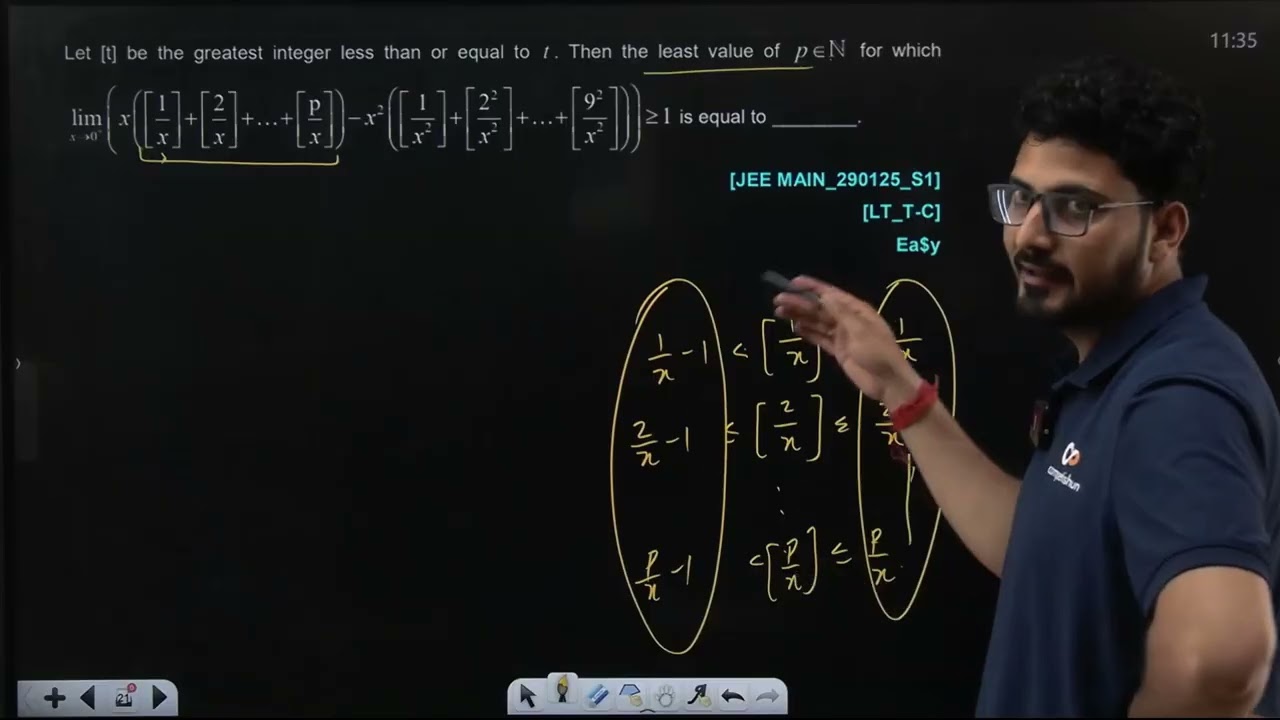 11:35
Let [t] be the greatest integer less than or equal to t. Then the least value of p∈ℕ for which
lim x→0⁺ (x([1/x]+[2/x]+...+[p/x])−x²([1/x²]+[2²/x²]+...+[9²/x²])) ≥1 is equal to ________.
[JEE MAIN_290125_S1]
[LT_T-C]
Ea$y
1/x −1 < [1/x] 1/x
2/x −1 < [2/x] ≤ 2/x
⋮
p/x −1 < [p/x] ≤ p/x
competishun
21